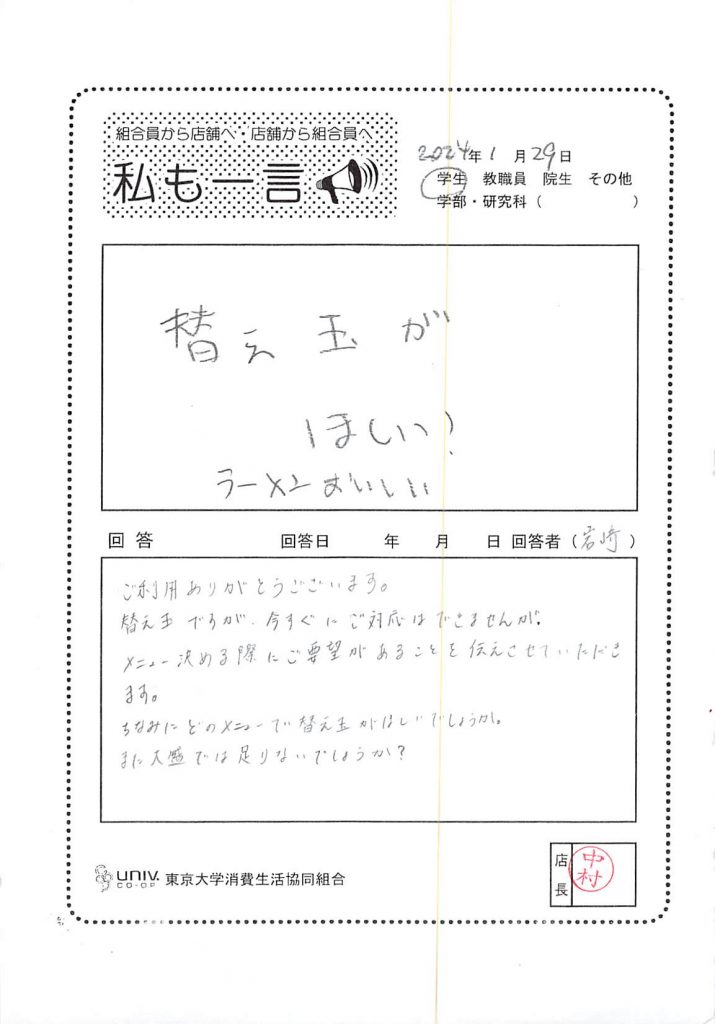 組合員から店舗へ・店舗から組合員へ
私も一言
2024年1月29日
学生 教職員 院生 その他
学部・研究科( )
替え玉が
ほしい!
ラーメンおいしい
回答 回答日 年 月 日 回答者(岩崎)
ご利用ありがとうございます。
替え玉ですが、今すぐにご対応はできませんが、
メニュー決める際にご要望があることを伝えさせていただき
ます。
ちなみにどのメニューで替え玉がほしいでしょうか。
また大盛では足りないでしょうか?
UNIV.
CO-OP
東京大学消費生活協同組合
店長
中村